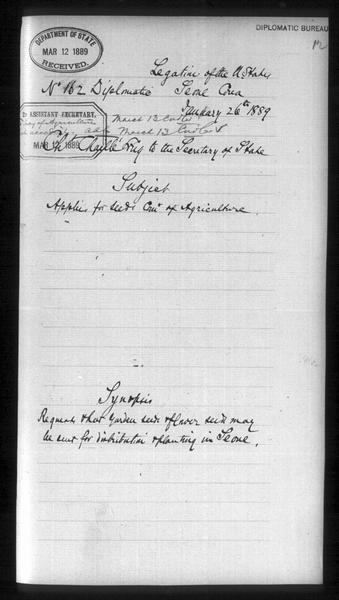 DEPARTMENT OF STATE
MAR 12 1889
RECEIVED.
DIPLOMATIC BUREAU
Legation of the U. States
No 162 Diplomatic Seoul Corea
January 26th 1889
ASSISTANT SECRETARY,
March 13
March 13
MAR 12 1889
Chs Chaillé Long to the Secretary of State
Subject
Applies for seeds Com' of Agriculture.
Synopsis
Requests that garden seeds & flower seeds may
be sent for distribution & planting in Seoul.